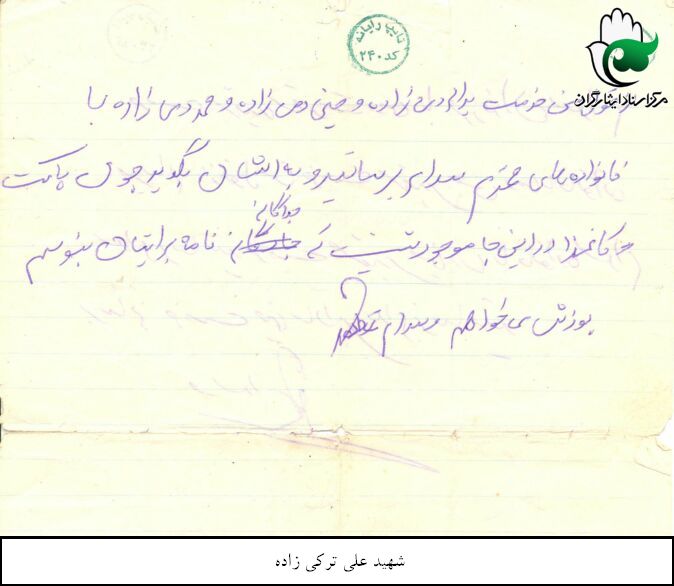 تایپ رایانه
کد ۲۴۰
مرکز اسناد ایثارگران
از قول من خدمت یدالله زاده و حسینی زاده و محمد زاده با
خانواده های محترم سلام برسانید و به ایشان بگوید چون پاکت
و کاغذ در این جا موجود نیست که جداگانه نامه برایتان بنویسم
پوزش می خواهم والسلام
شهید علی ترکی زاده